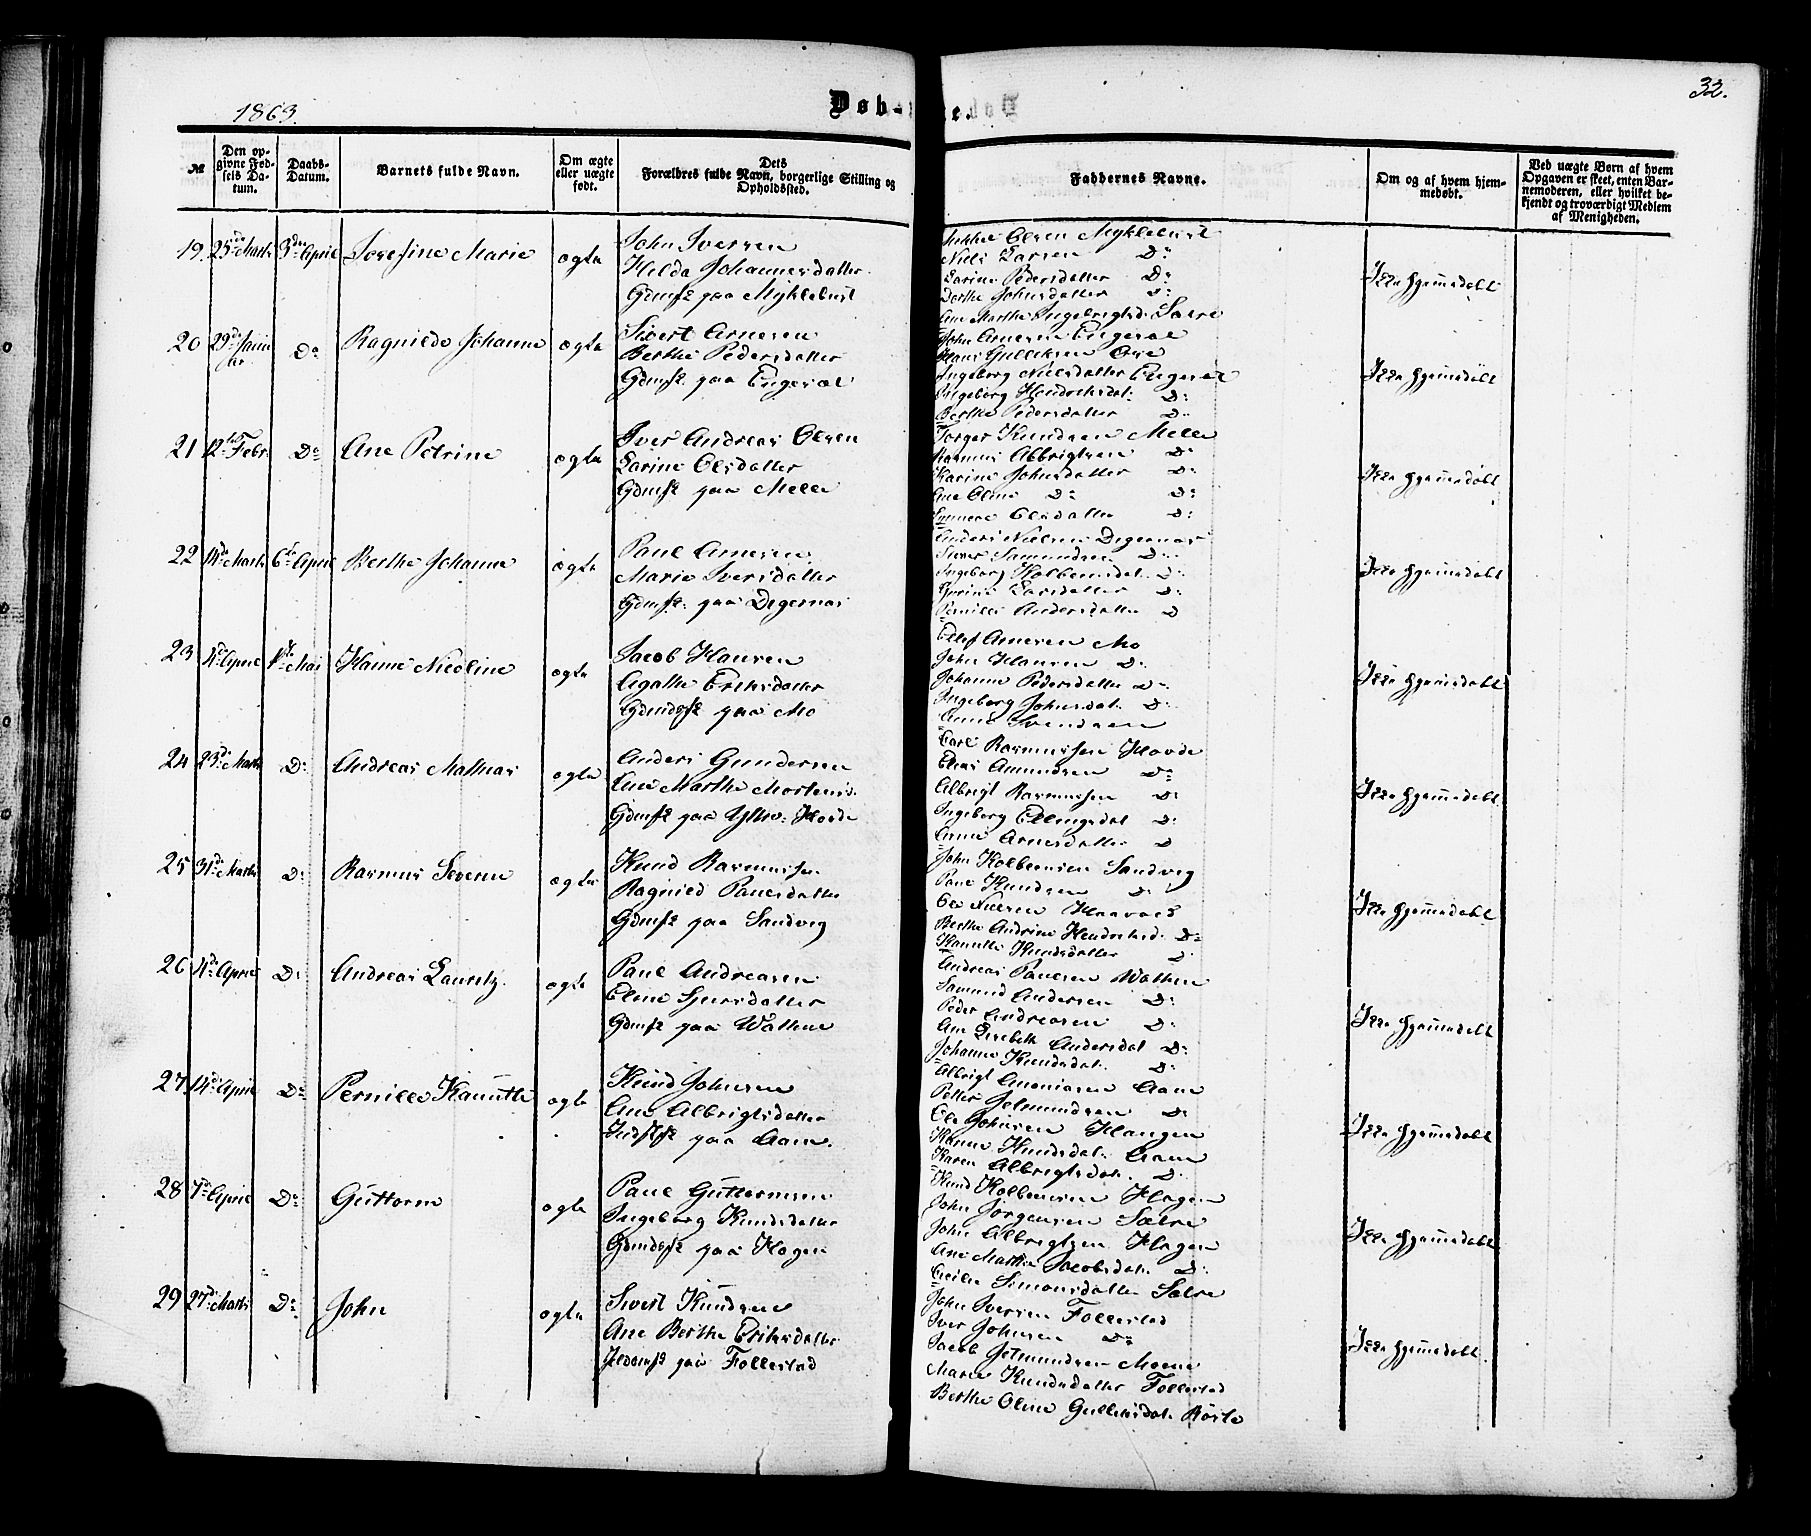 1863.
Døb-
32.
№
Den opgivne Fødsels Datum.
Daabs-Datum.
Barnets fulde Navn.
Om ægte eller uægte født.
Dets Forældres fulde Navn, borgerlige Stilling og Opholdssted.
Faddernes Navne.
Om og af hvem hjemmedøbt.
Ved uægte Børn af hvem Opgaven er skeet, enten Barnemoderen, eller hvilket bekjendt og troværdigt Medlem af Menigheden.
19. 25de Marts 3die April Josefine Marie ægte
John Iversen
Helda Johannesdatter.
Gdmsk paa Myklebust
Olsen Myklebust
Niels Larsen Do
Larine Pedersdatter Do
Dorthe Johnsdatter Do
Ane Marthe Ingebrigtsd. Sætre
Ikke hjemmedøbt
20 29de Do Ragnilde Johanne ægte
Sivert Arnesen
Berthe Pedersdatter
Gdmsk. paa Engeset
John Arnesen Engeset
Hans Gulliksen
Ingeborg Nielsdatter Engeset
Ingeborg Hendriksdat. Do
Berthe Pedersdatter Do
Ikke hjemmedøbt
21 12te Febr. Do Ane Petrine ægte
Iver Andreas Olsen
Larine Olsdatter
Gdmsk paa Melle
Torger Knudsen Melle
Rasmus Albrigtsen Do
Karine Johnsdatter Do
Ane Oline Do Do
Olsdatter Do
Ikke hjemmedøbt
22 14de Marts 6te April Berthe Johanne ægte
Paul Arnesen
Marie Iversdatter
Gdmsk. paa Digernæs
Anders Nielsen Digernæs
Iver Samundsen Do
Ingeborg Kolbensdat. Do
Larsdatter Do
Pernille Andersdatter Do
Ikke hjemmedøbt
23 4de April 1ste Mai Hanne Nicoline ægte
Jacob Hansen
Agathe Eriksdatter
Gdmdsk paa Mo
Ellef Arnesen Mo
John Hansen Do
Johanne Pedersdatter Do
Ingeborg Johnsdat. Do
Anne Svendsen
Ikke hjemmedøbt
24 23de Marts Do Andreas Mathias ægte
Anders Gundersen
Ane Marthe Mortensd.
Gdmsk paa Yttre-Hovde
Carl Rasmussen Hovde
Elias Amundsen Do
Albrigt Rasmussen Do
Ingeborg Ellingsdat Do
Anne Arnesdatter Do
Ikke hjemmedøbt
25 31de Marts Do Rasmus Severin ægte
Knud Rasmussen
Ragnild Paulsdatter
Gdmsk paa Sandvig
John Kolbensen Sandvig
Paul Knudsen Do
Ole Nielsen
Berthe Andrine Hendriksd. Do
Knudsdatter Do
Ikke hjemmedøbt
26 4de April Do Andreas Lauritz. ægte
Paul Andreasen
Eline Sjursdatter
Gdmsk paa Watne
Andreas Paulsen Watne
Samund Andersen Do
Peder Andreasen Do
Ane Lisebeth Andersdat Do
Johanne Knudsdat. Do
Ikke hjemmedøbt
27 14de April Do Pernille Knutte ægte
Knud Johnsen
Ane Albrigtsdatter
Indstsk paa Aam.
Albrigt Ananiasen Aam
Petter Jetmundsen Do
Ole Johnsen Hangen
Knudsdat. Aam
Karen Albrigtsdat. Do
Ikke hjemmedøbt
28 7de April Do Guttorm ægte
Paul Guttormsen
Ingeborg Knudsdatter
Gdmdsk paa Hagen
Knud Kolbensen Hagen
John Jørgensen Sætre
John Albrigtsen Hagen
Ane Marthe Jacobsdat. Do
Cecilie Simonsdatter Sætre
Ikke hjemmedøbt
29 27de Marts Do John ægte
Sivert Knudsen
Ane Berthe Eriksdatter
paa Follestad
John Iversen Follestad
Iver Johnsen Do
Jacob Jetmundsen Moene
Marie Knudsdatter Follestad
Berthe Oline Gulliksdat. Røste
Ikke hjemmedøbt.